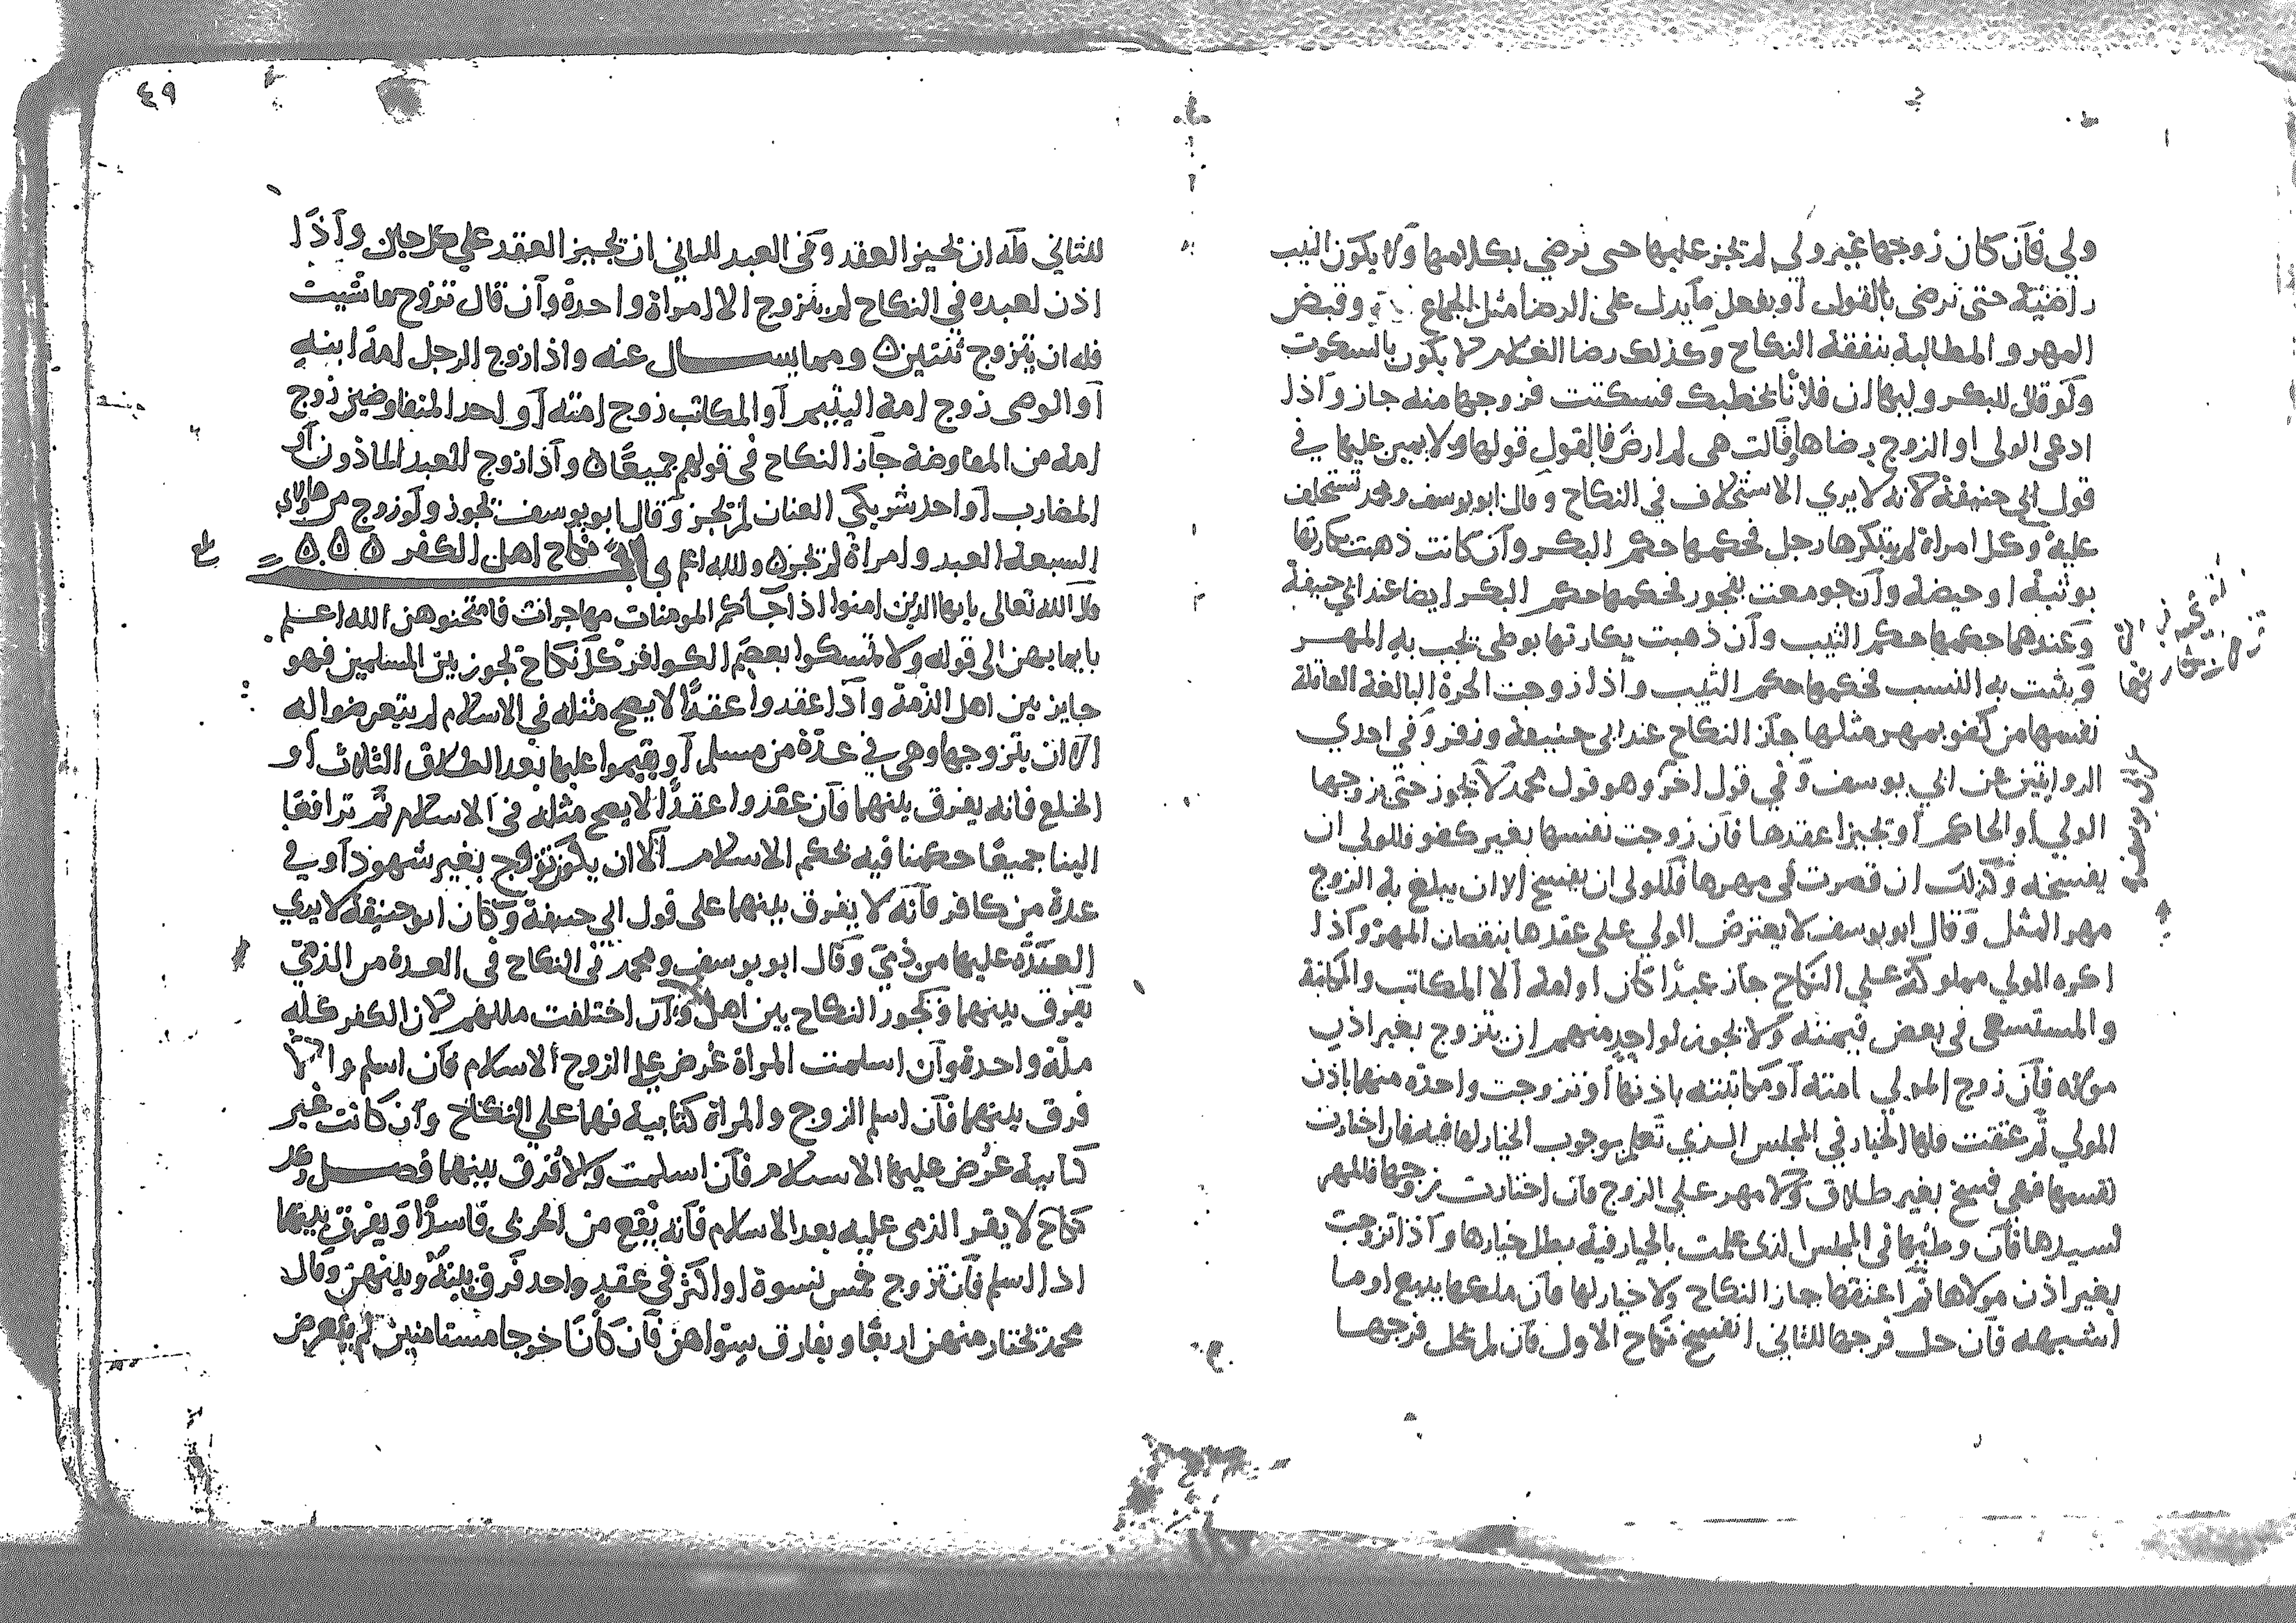 ولي فان كان زوجها غير ولي لم يجز عليها حتى ترضي بكلامها ولا يكون الثيب
راضية حتى ترضى بالقول او بفعل ما يدل على الرضا مثل الجماع وقبض
المهر والمطالبة بنفقة النكاح وكذلك رضا الغلام لا يكون بالسكوت
ولو قال للبكر وليها ان فلانا يخطبك فسكتت فزوجها منه جاز واذا
ادعى الولى او الزوج رضاها وقالت هى لم ارض فالقول قولها ولا يمين عليها في
قول ابي حنيفة لانه لا يري الاستحلاف في النكاح وقال ابو يوسف ومحمد تستحلف
عليه وكل امراة لم يبتكرها رجل فحكمها حكم البكر وان كانت ذهبت بكارتها
بوثبة او حيضة وان جومعت بفجور فحكمها حكم البكر ايضا عند ابي حنيفة
وعندهما حكمها حكم الثيب وان ذهبت بكارتها بوطى يجب به المهر
ويثبت به النسب فحكمها حكم الثيب واذا زوجت الحرة البالغة العاقلة
نفسها من كفو بمهر مثلها جاز النكاح عند ابى حنيفة وزفر وفى احدي
الروايتين عن ابي يوسف وفي قول اخر وهو قول محمد لا يجوز حتى يزوجها
الولي او الحاكم او يجيزا عقدها فان زوجت نفسها بغير كفو فللولي ان
يفسخه وكذلك ان قصرت في مهرها فللولى ان يفسخ الا ان يبلغ به الزوج
مهر المثل وقال ابو يوسف لا يعترض الولي على عقدها بنقصان المهر واذا
اكره المولي مملوكه علي النكاح جاز عبدا كان او امة الا المكاتب والمكاتبة
والمستسعى فى بعض قيمته ولا يجوز لواحد منهم ان يتزوج بغير اذن
مولاه فان زوج المولي امته او مكاتبته باذنها او تزوجت واحدة منهما باذن
المولي ثم عتقت فلها الخيار في المجلس الذي تعلم بوجوب الخيار لها فيه فان اختارت
نفسها فهى فسخ بغير طلاق ولا مهر علي الزوج فان اختارت زوجها فالمهر
لسيدها فان وطئها فى المجلس الذى علمت بالخيار فيه بطل خيارها واذا تزوجت
بغير اذن مولاها ثم اعتقها جاز النكاح ولا خيار لها فان ملكها ببيع او ما
اشبهه فان حل فرجها للثانى انفسخ نكاح الاول فان لم يحل فرجها
٤٩
للثاني فله ان يجيز العقد وفى العبد للثاني ان يجيز العقد علي كل حال واذا
اذن لعبده في النكاح لم يتزوج الا امراة واحدة وان قال تزوج ما شيت
فله ان يتزوج ثنتين ومما يسال عنه واذا زوج الرجل امة ابنه
او الوصى زوج امة اليتيم او المكاتب زوج امته او احد المتفاوضين زوج
امة من المفاوضة جاز النكاح فى قولهم جميعا واذا زوج العبد الماذون او
المضارب او احد شريكى العنان لم يجز وقال ابو يوسف يجوز ولو زوج من هولاي
السبعة العبد وامراة لم يجز والله اعلم نكاح اهل الكفر
قال الله تعالى يايها الذين امنوا اذا جاكم المومنات مهاجرات فامتحنوهن الله اعلم
بايمانهن الى قوله ولا تمسكوا بعصم الكوافر كل نكاح يجوز بين المسلمين فهو
جايز بين اهل الذمة واذا عقدوا عقدا لا يصح مثله في الاسلام لم يتعرضوا له
الا ان يتزوجها وهى في عدة من مسلم او يقيموا عليها بعد الطلاق الثلاث او
الخلع فانه يفرق بينهما فان عقدوا عقدا لا يصح مثله فى الاسلام ثم ترافعا
الينا جميعا حكمنا فيه بحكم الاسلام الا ان يكون تزوج بغير شهود او في
عدة من كافر فانه لا يفرق بينهما على قول ابي حنيفة وكان ابو حنيفة لا يري
العدة عليها من ذمي وقال ابو يوسف ومحمد فى النكاح فى العدة من الذمى
يفرق بينهما ويجوز النكاح بين اهل وان اختلفت مللهم لان الكفر كله
ملة واحدة وان اسلمت المراة عرض علي الزوج الاسلام فان اسلم والا
فرق بينهما فان اسلم الزوج والمراة كتابية فهما علي النكاح وان كانت غير
كتابية عرض عليها الاسلام فان اسلمت والا فرق بينهما فصل وكل
نكاح لا يقر الذمى عليه بعد الاسلام فانه يقع من الحربى فاسدا ويفرق بينهما
اذا اسلم فان تزوج خمس نسوة او اكثر في عقد واحد فرق بينه وبينهن وقال
محمد يختار منهن اربعا ويفارق سواهن فان كانا خرجا مستامنين لم يتعرض